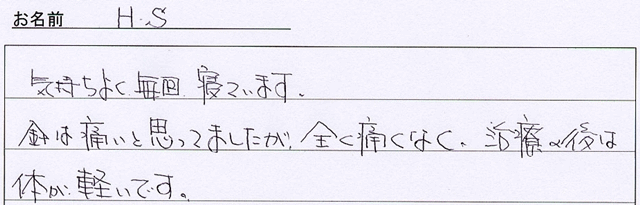 お名前 H.S
気持ちよく毎回寝ています。
針は痛いと思ってましたが、全く痛くなく、治療の後は
体が軽いです。